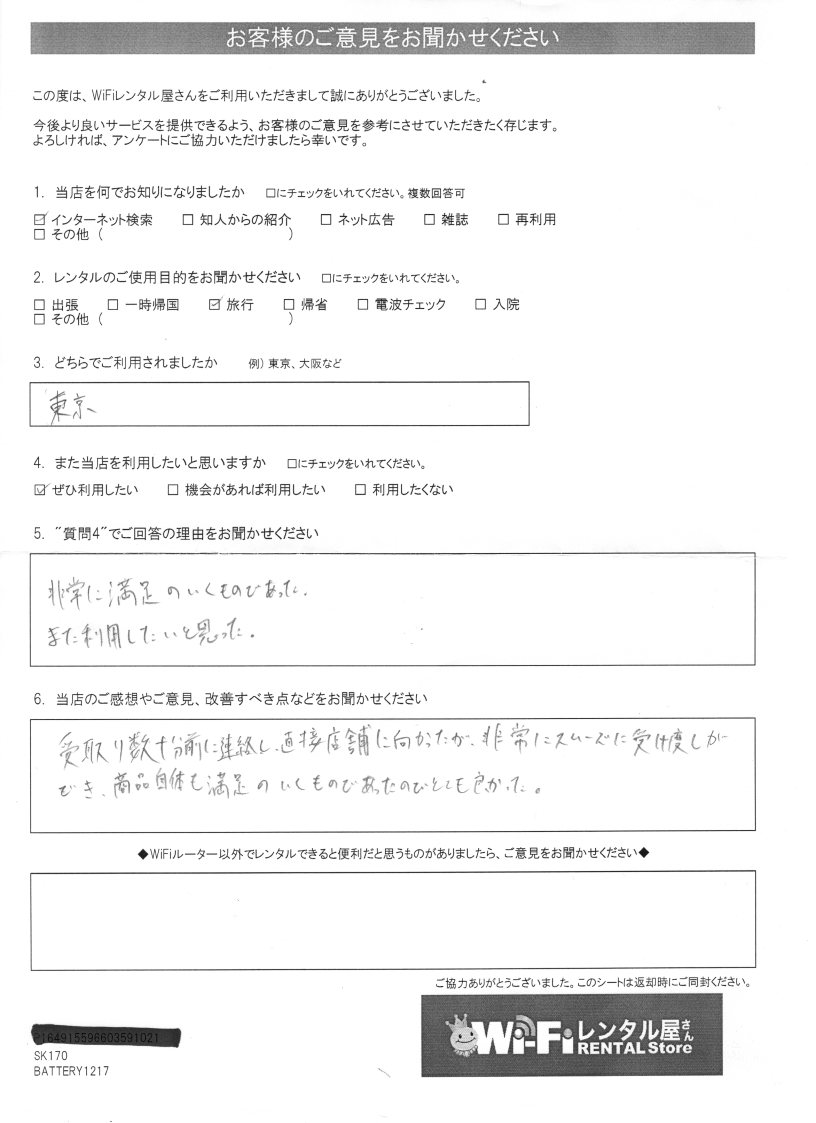 お客様のご意見をお聞かせください
この度は、WiFiレンタル屋さんをご利用いただきまして誠にありがとうございました。
今後より良いサービスを提供できるよう、お客様のご意見を参考にさせていただきたく存じます。
よろしければ、アンケートにご協力いただけましたら幸いです。
1. 当店を何でお知りになりましたか □にチェックをいれてください。複数回答可
☑ インターネット検索 □ 知人からの紹介 □ ネット広告 □ 雑誌 □ 再利用
□ その他 ( )
2. レンタルのご使用目的をお聞かせください □にチェックをいれてください。
□ 出張 □ 一時帰国 ☑ 旅行 □ 帰省 □ 電波チェック □ 入院
□ その他 ( )
3. どちらでご利用されましたか 例) 東京、大阪など
東京、
4. また当店を利用したいと思いますか □にチェックをいれてください。
☑ ぜひ利用したい □ 機会があれば利用したい □ 利用したくない
5. "質問4"でご回答の理由をお聞かせください
非常に満足のいくものであった。
また利用したいと思った。
6. 当店のご感想やご意見、改善すべき点などをお聞かせください
受取り数十分前に連絡し、直接店舗に向かったが、非常にスムーズに受け渡しが
でき、商品自体も満足のいくものであったのでとても良かった。
◆WiFiルーター以外でレンタルできると便利だと思うものがありましたら、ご意見をお聞かせください◆
ご協力ありがとうございました。このシートは返却時にご同封ください。
Wi-Fiレンタル屋さん
RENTAL Store
SK170
BATTERY1217